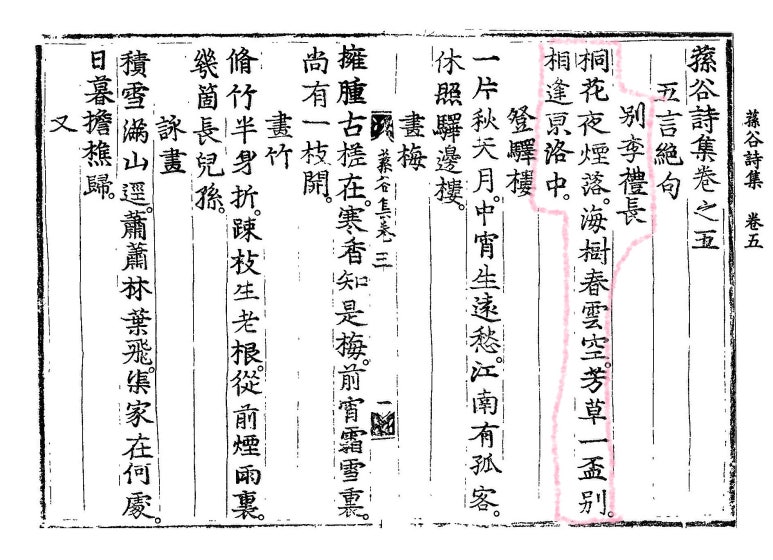 蓀谷詩集 卷五
蓀谷詩集卷之五
五言絶句
别李禮長
桐花夜煙落。海樹春雲空。芳草一盃别。
相逢京洛中。
登驛樓
一片秋天月。中宵生遠愁。江南有孤客。
休照驛邊樓。
畫梅
蓀谷集卷三
一
擁腫古槎在。寒香知是梅。前宵霜雪裏。
尚有一枝開。
畫竹
脩竹半身折。踈枝生老根。從前煙雨裏。
幾箇長兒孫。
詠畫
積雪滿山逕。蕭蕭林葉飛。渠家在何處。
日暮擔樵歸。
又